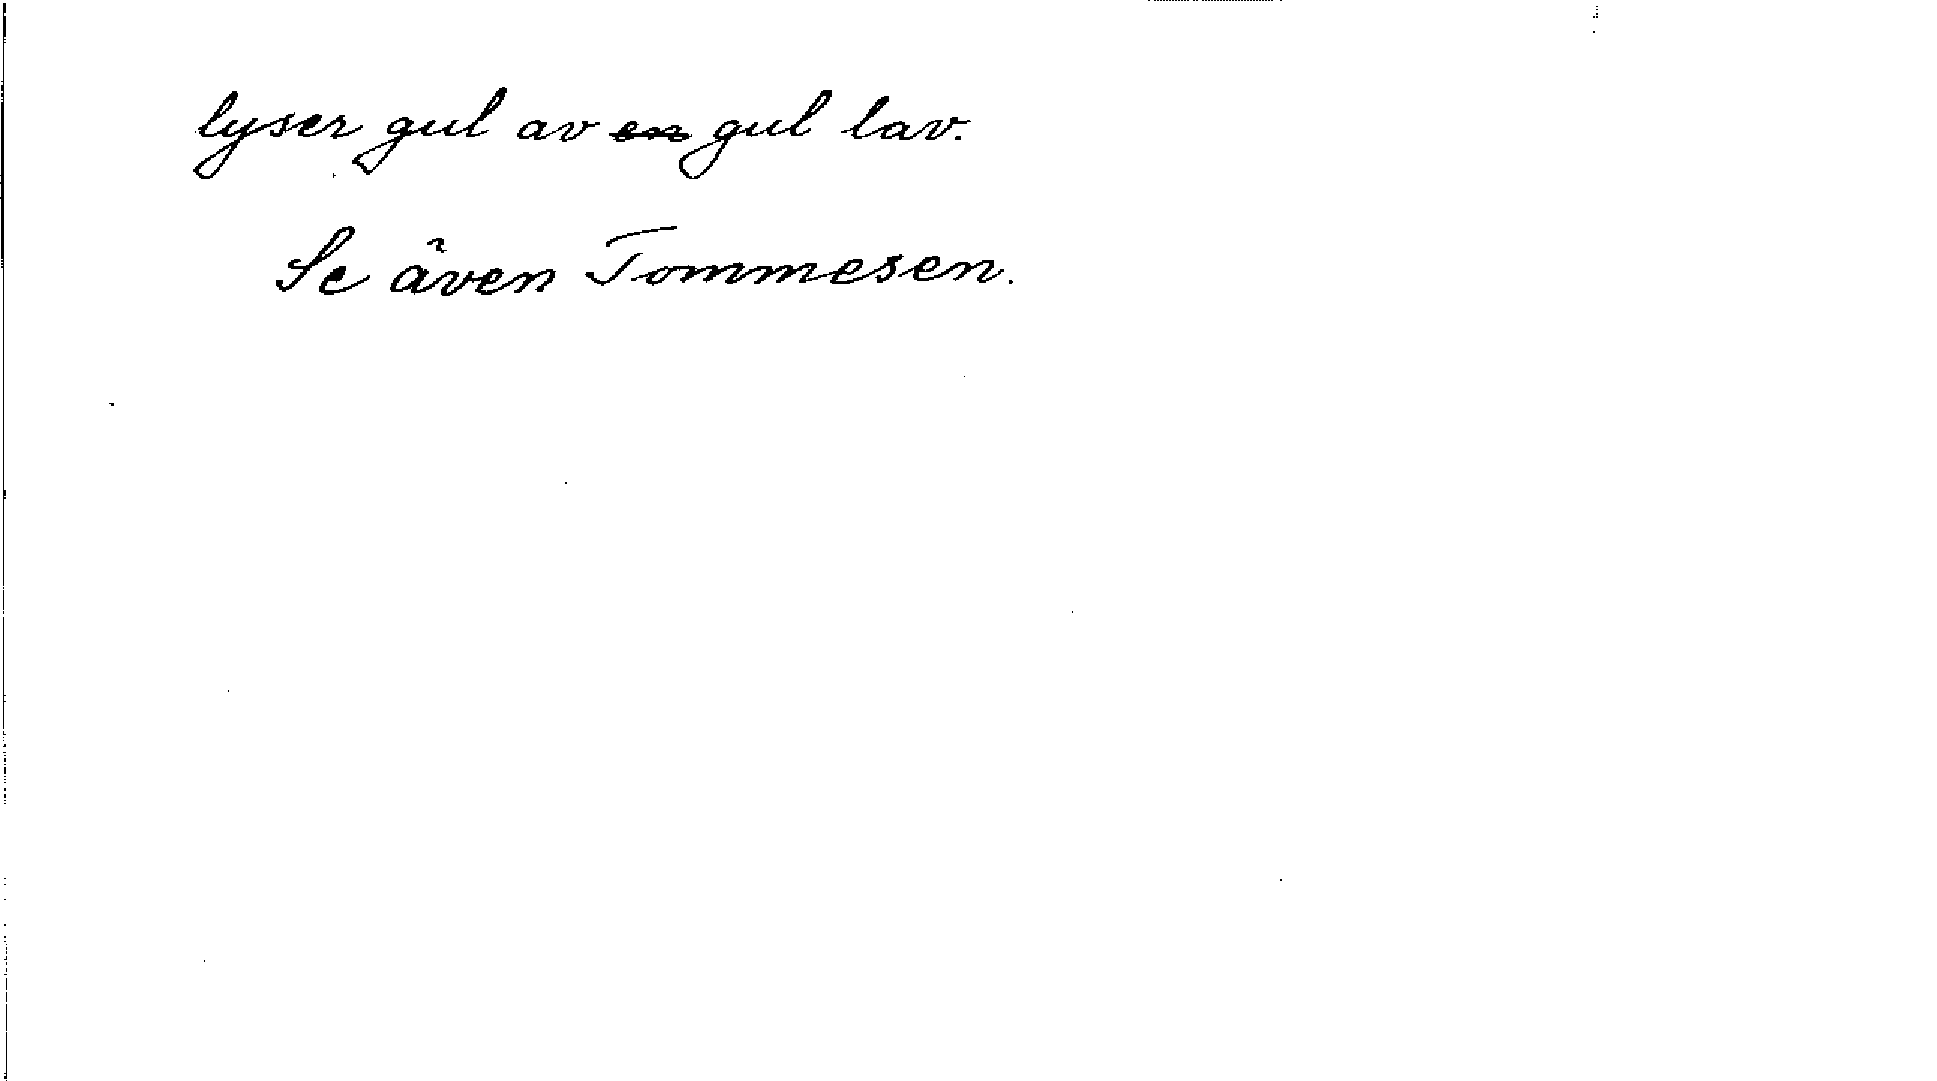 lyser gul av en gul lav.
Se även Tommesen.